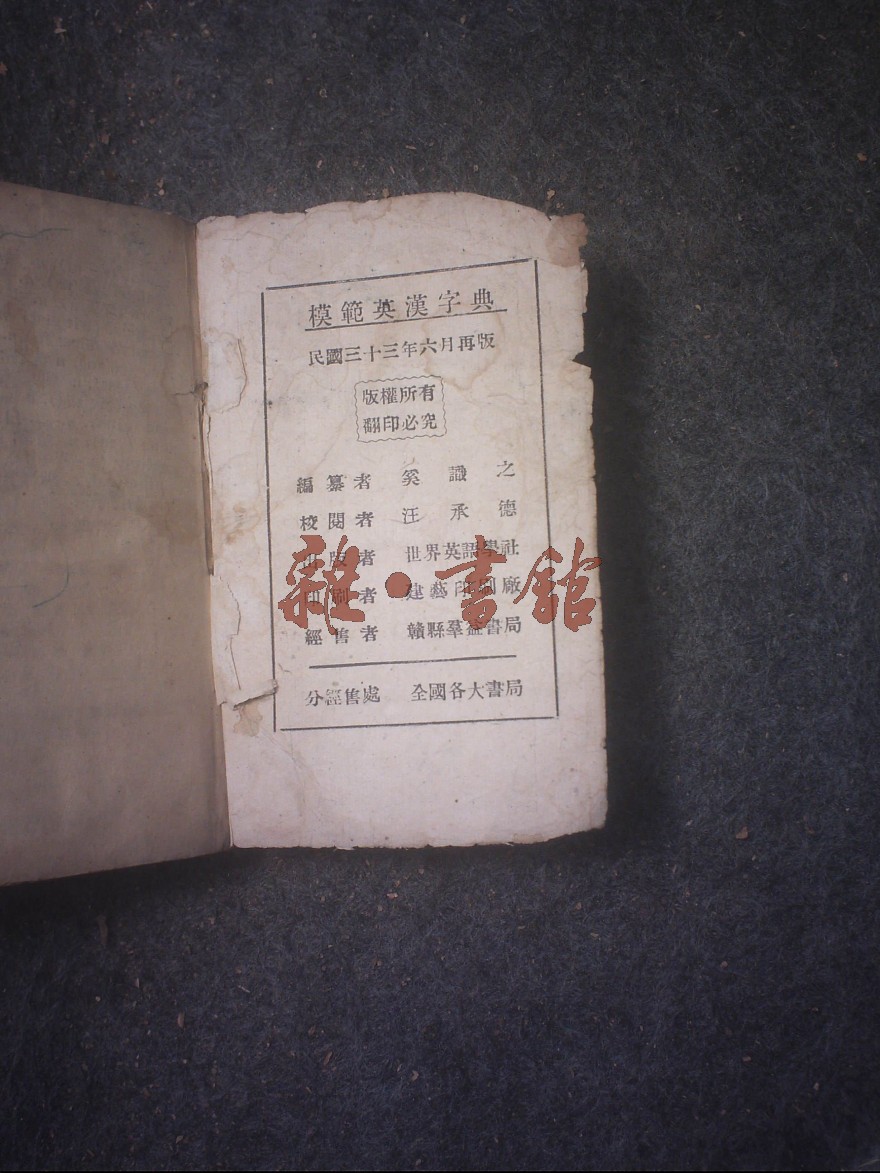 模範英漢字典
民國三十三年六月再版
版權所有
翻印必究
編纂者 奚識之
校閱者 汪承德
出版者 世界英語學社
印刷者 建藝印刷廠
經售者 贛縣羣益書局
分經售處 全國各大書局
雜·書館